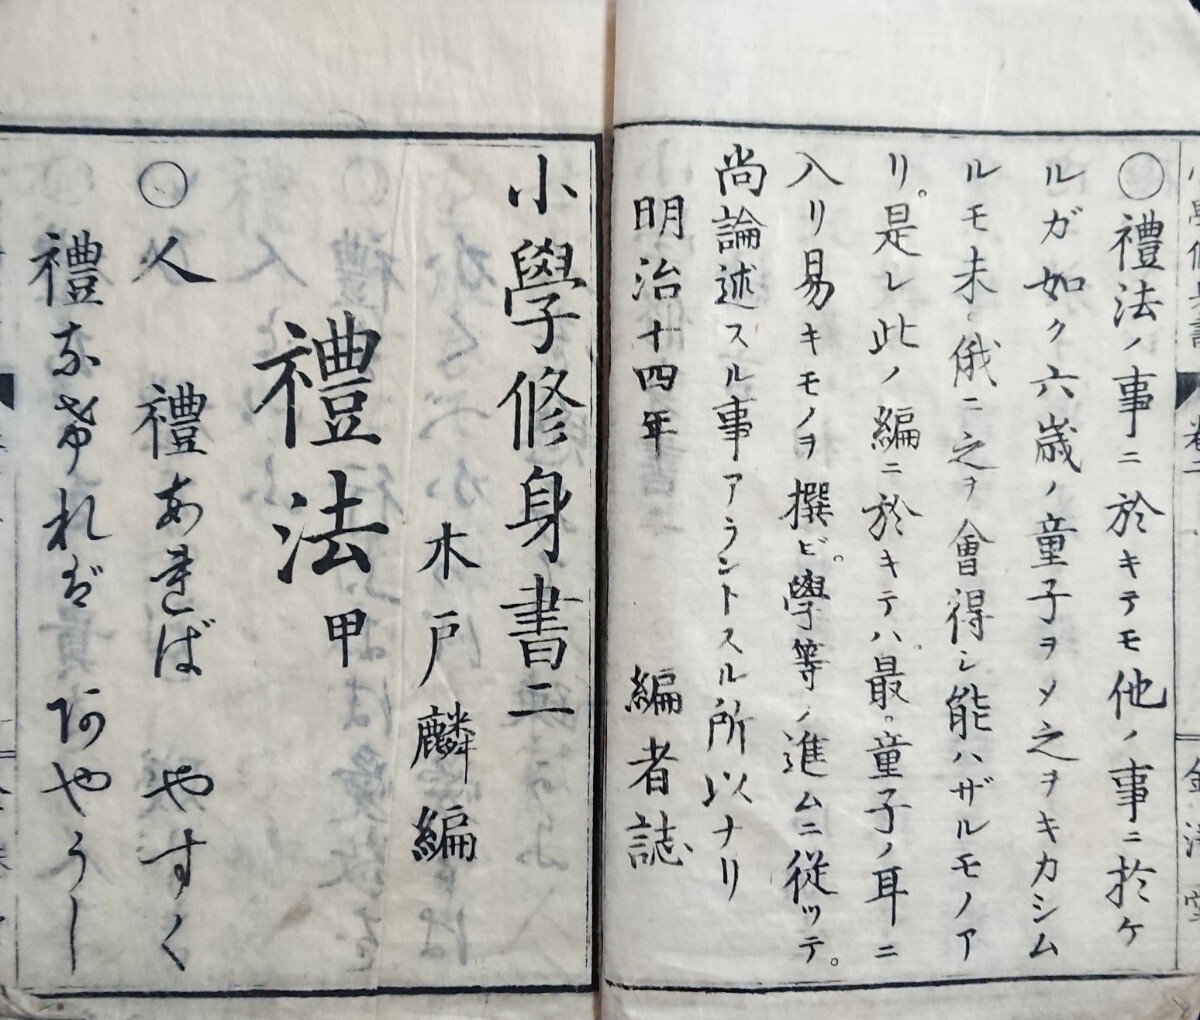 〇禮法ノ事ニ於キテモ他ノ事ニ於ケ
ルガ如ク六歳ノ童子ヲメ之ヲキカシム
ルモ未ダ俄ニ之ヲ會得シ能ハザルモノア
リ。是レ此ノ編ニ於キテハ最。童子ノ耳ニ
入リ易キモノヲ撰ビ。學等ノ進ムニ從ッテ。
尚論述スル事アラントスル所以ナリ
明治十四年 編者誌
小學修身書二
木戸麟編
禮法 甲
〇人 禮あれば やすく
禮なければ あやうし